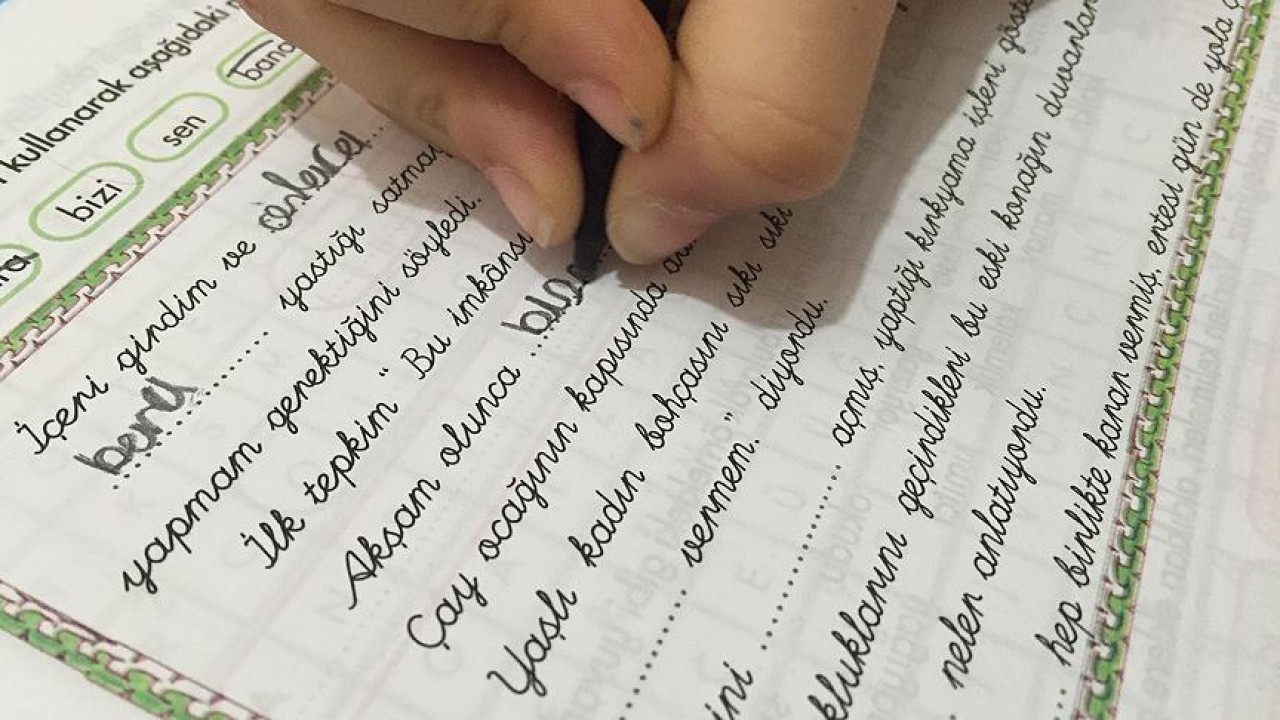 kullanarak aşağıdaki
bizi sen bana
İçeri girdim ve onlara
beni yastığı satmay
yapmam gerektiğini söyledi.
İlk tepkim “ Bu imkânsı
Akşam olunca
Çay ocağının kapısında
Yaşlı kadın bohçasını sıkı sıkı
vermem.” diyordu.
ini açmış, yaptığı kırkyama işleri göste
kluklarını geçindikleri bu eski konağın duvarlar
neler anlatıyordu.
hep birlikte karar vermiş, ertesi gün de yola